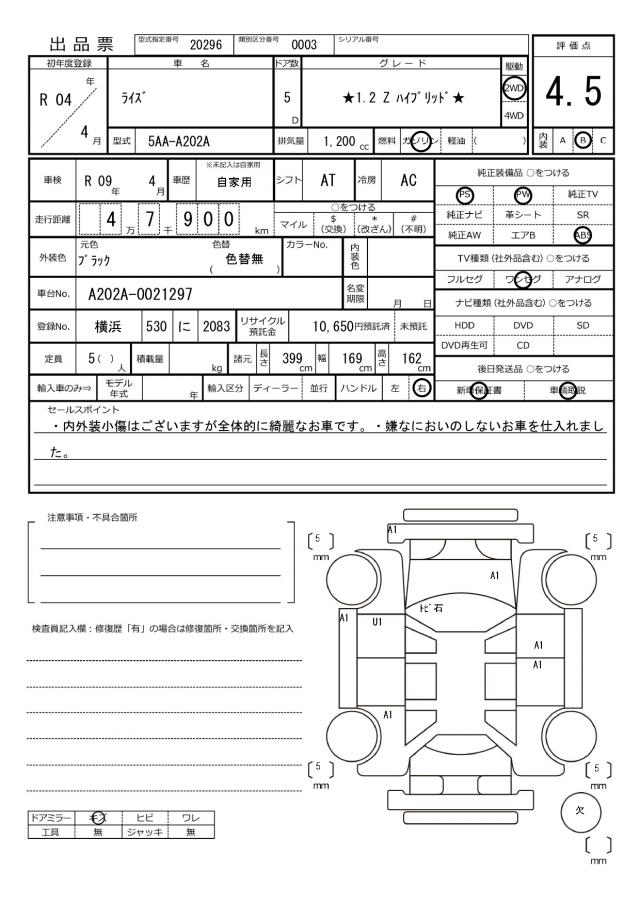 出品票 型式指定番号 20296 類別区分番号 0003 シリアル番号
評価点
初年度登録 車 名 ドア数 グレード 駆動
R 04 年 ライズ 5 D ★1.2 Z ハイブリッド★ 2WD 4WD
4.5
4 月 型式 5AA-A202A 排気量 1,200 cc 燃料 ガソリン 軽油 ( )
内装 A B C
車検 R 09 年 4 月 車歴 ※未記入は自家用 自家用 シフト AT 冷房 AC
純正装備品 ○をつける
PS PW 純正TV
純正ナビ 革シート SR
純正AW エアB ABS
走行距離 4 万 7 千 9 0 0 km
○をつける
マイル $ (交換) * (改ざん) # (不明)
外装色 元色 ブラック 色替 ( 色替無 ) カラーNo. 内装色
TV種類 (社外品含む) ○をつける
フルセグ ワンセグ アナログ
車台No. A202A-0021297 名変期限 月 日
ナビ種類 (社外品含む) ○をつける
HDD DVD SD
DVD再生可 CD
登録No. 横浜 530 に 2083 リサイクル預託金 10,650円預託済 未預託
定員 5 ( ) 人 積載量 kg 諸元 長さ 399 cm 幅 169 cm 高さ 162 cm
後日発送品 ○をつける
新車保証書 車輌取説
輸入車のみ⇒ モデル年式 年 輸入区分 ディーラー 並行 ハンドル 左 右
セールスポイント
・内外装小傷はございますが全体的に綺麗なお車です。・嫌なにおいのしないお車を仕入れまし
た。
注意事項・不具合箇所
検査員記入欄：修復歴「有」の場合は修復箇所・交換箇所を記入
A1
5 mm
5 mm
A1
トビ石
A1
U1
A1
A1
A1
5 mm
5 mm
欠
mm
ドアミラー キズ ヒビ ワレ
工具 無 ジャッキ 無